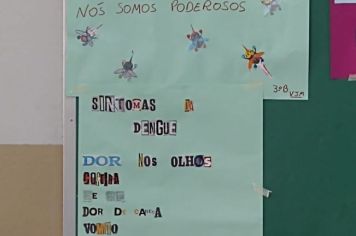 NÓS SOMOS PODEROSOS
3ºB VIM
SINTOMAS DA
DENGUE
DOR NOS OLHOS
DOR DE CABEÇA
VOMITO